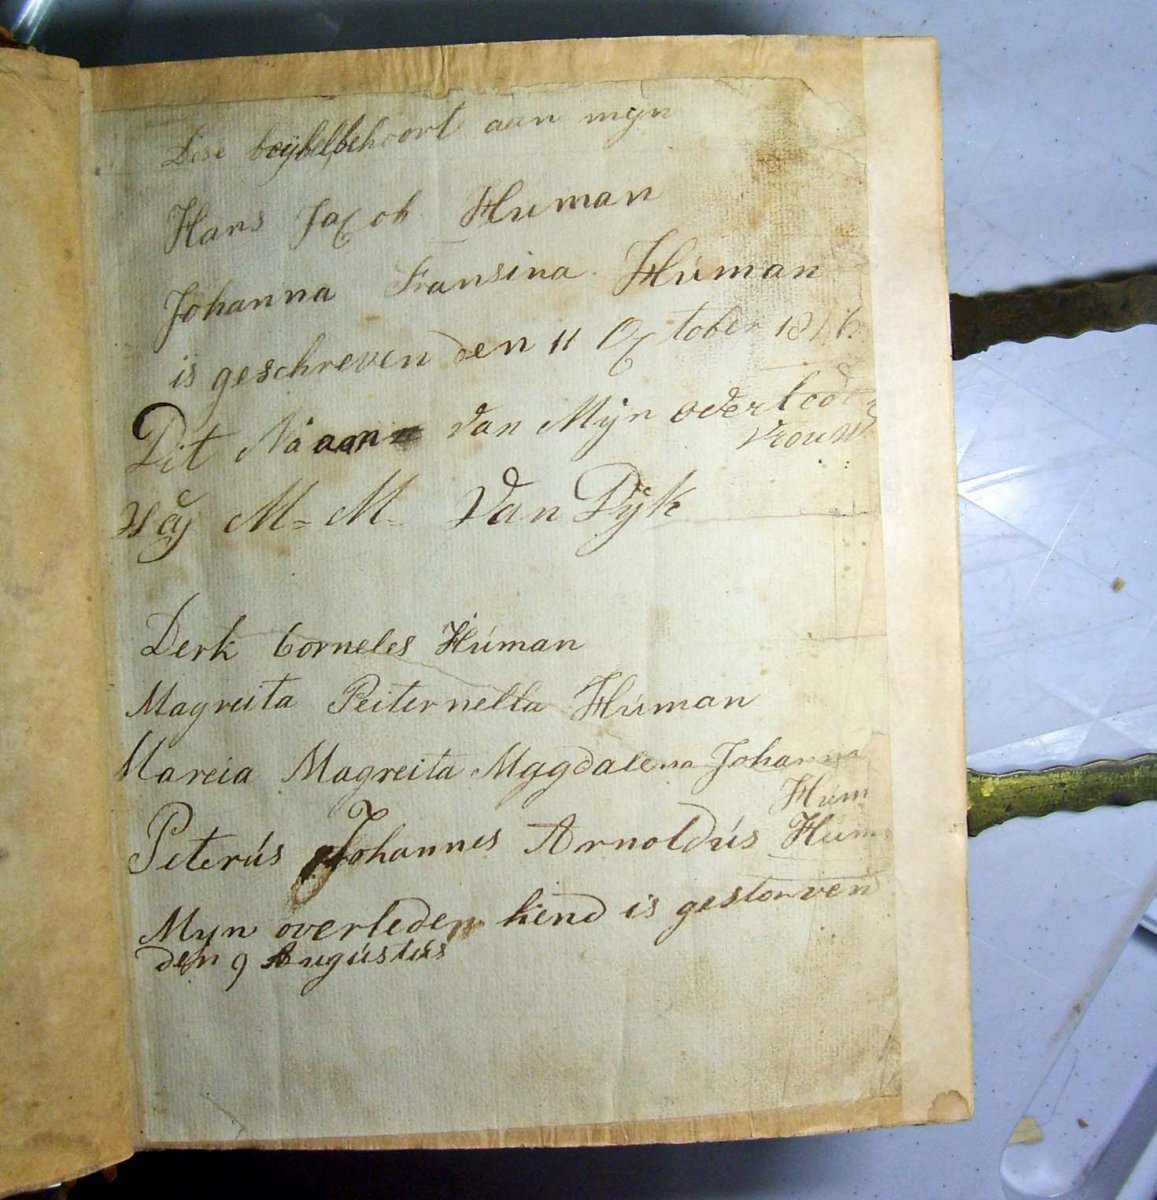 Dese beybel behoort aan mijn
Hans Jacob Human
Johanna Fransina Húman
is geschreven den 11 October
Dit Náam van Mijn overleode
vrouw
was M= M= Van Dÿk
Derk Corneles Húman
Magreita Peiternella Húman
Mareia Magreita Maggdalena Johanna
Húm
Peterús Johannes Arnoldús Húm
Myn overleden kend is gestorven
den 9 Augústús